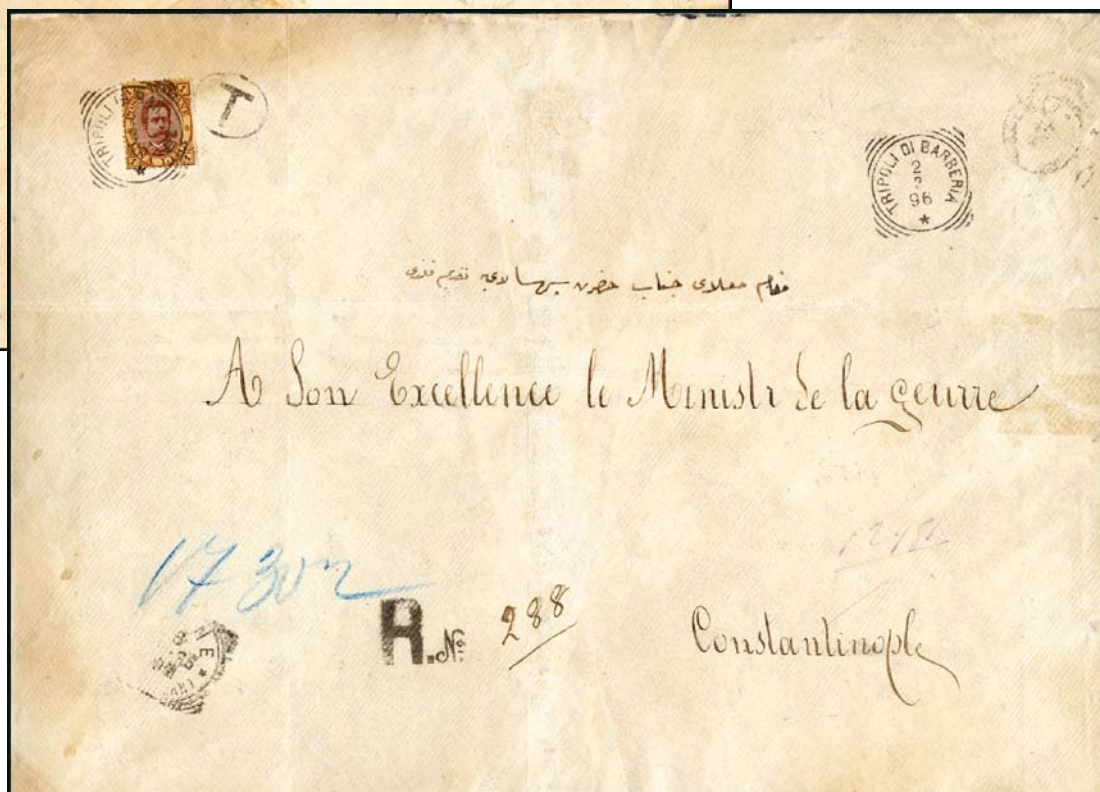 TRIPOLI
T
TRIPOLI DI BARBERIA
2
96
*
مقام معلای جناب حضرت سپهسالاری تقدیم قلندی
A Son Excellence le Ministr de la geurre
17 302
R. №
288
Constantinople